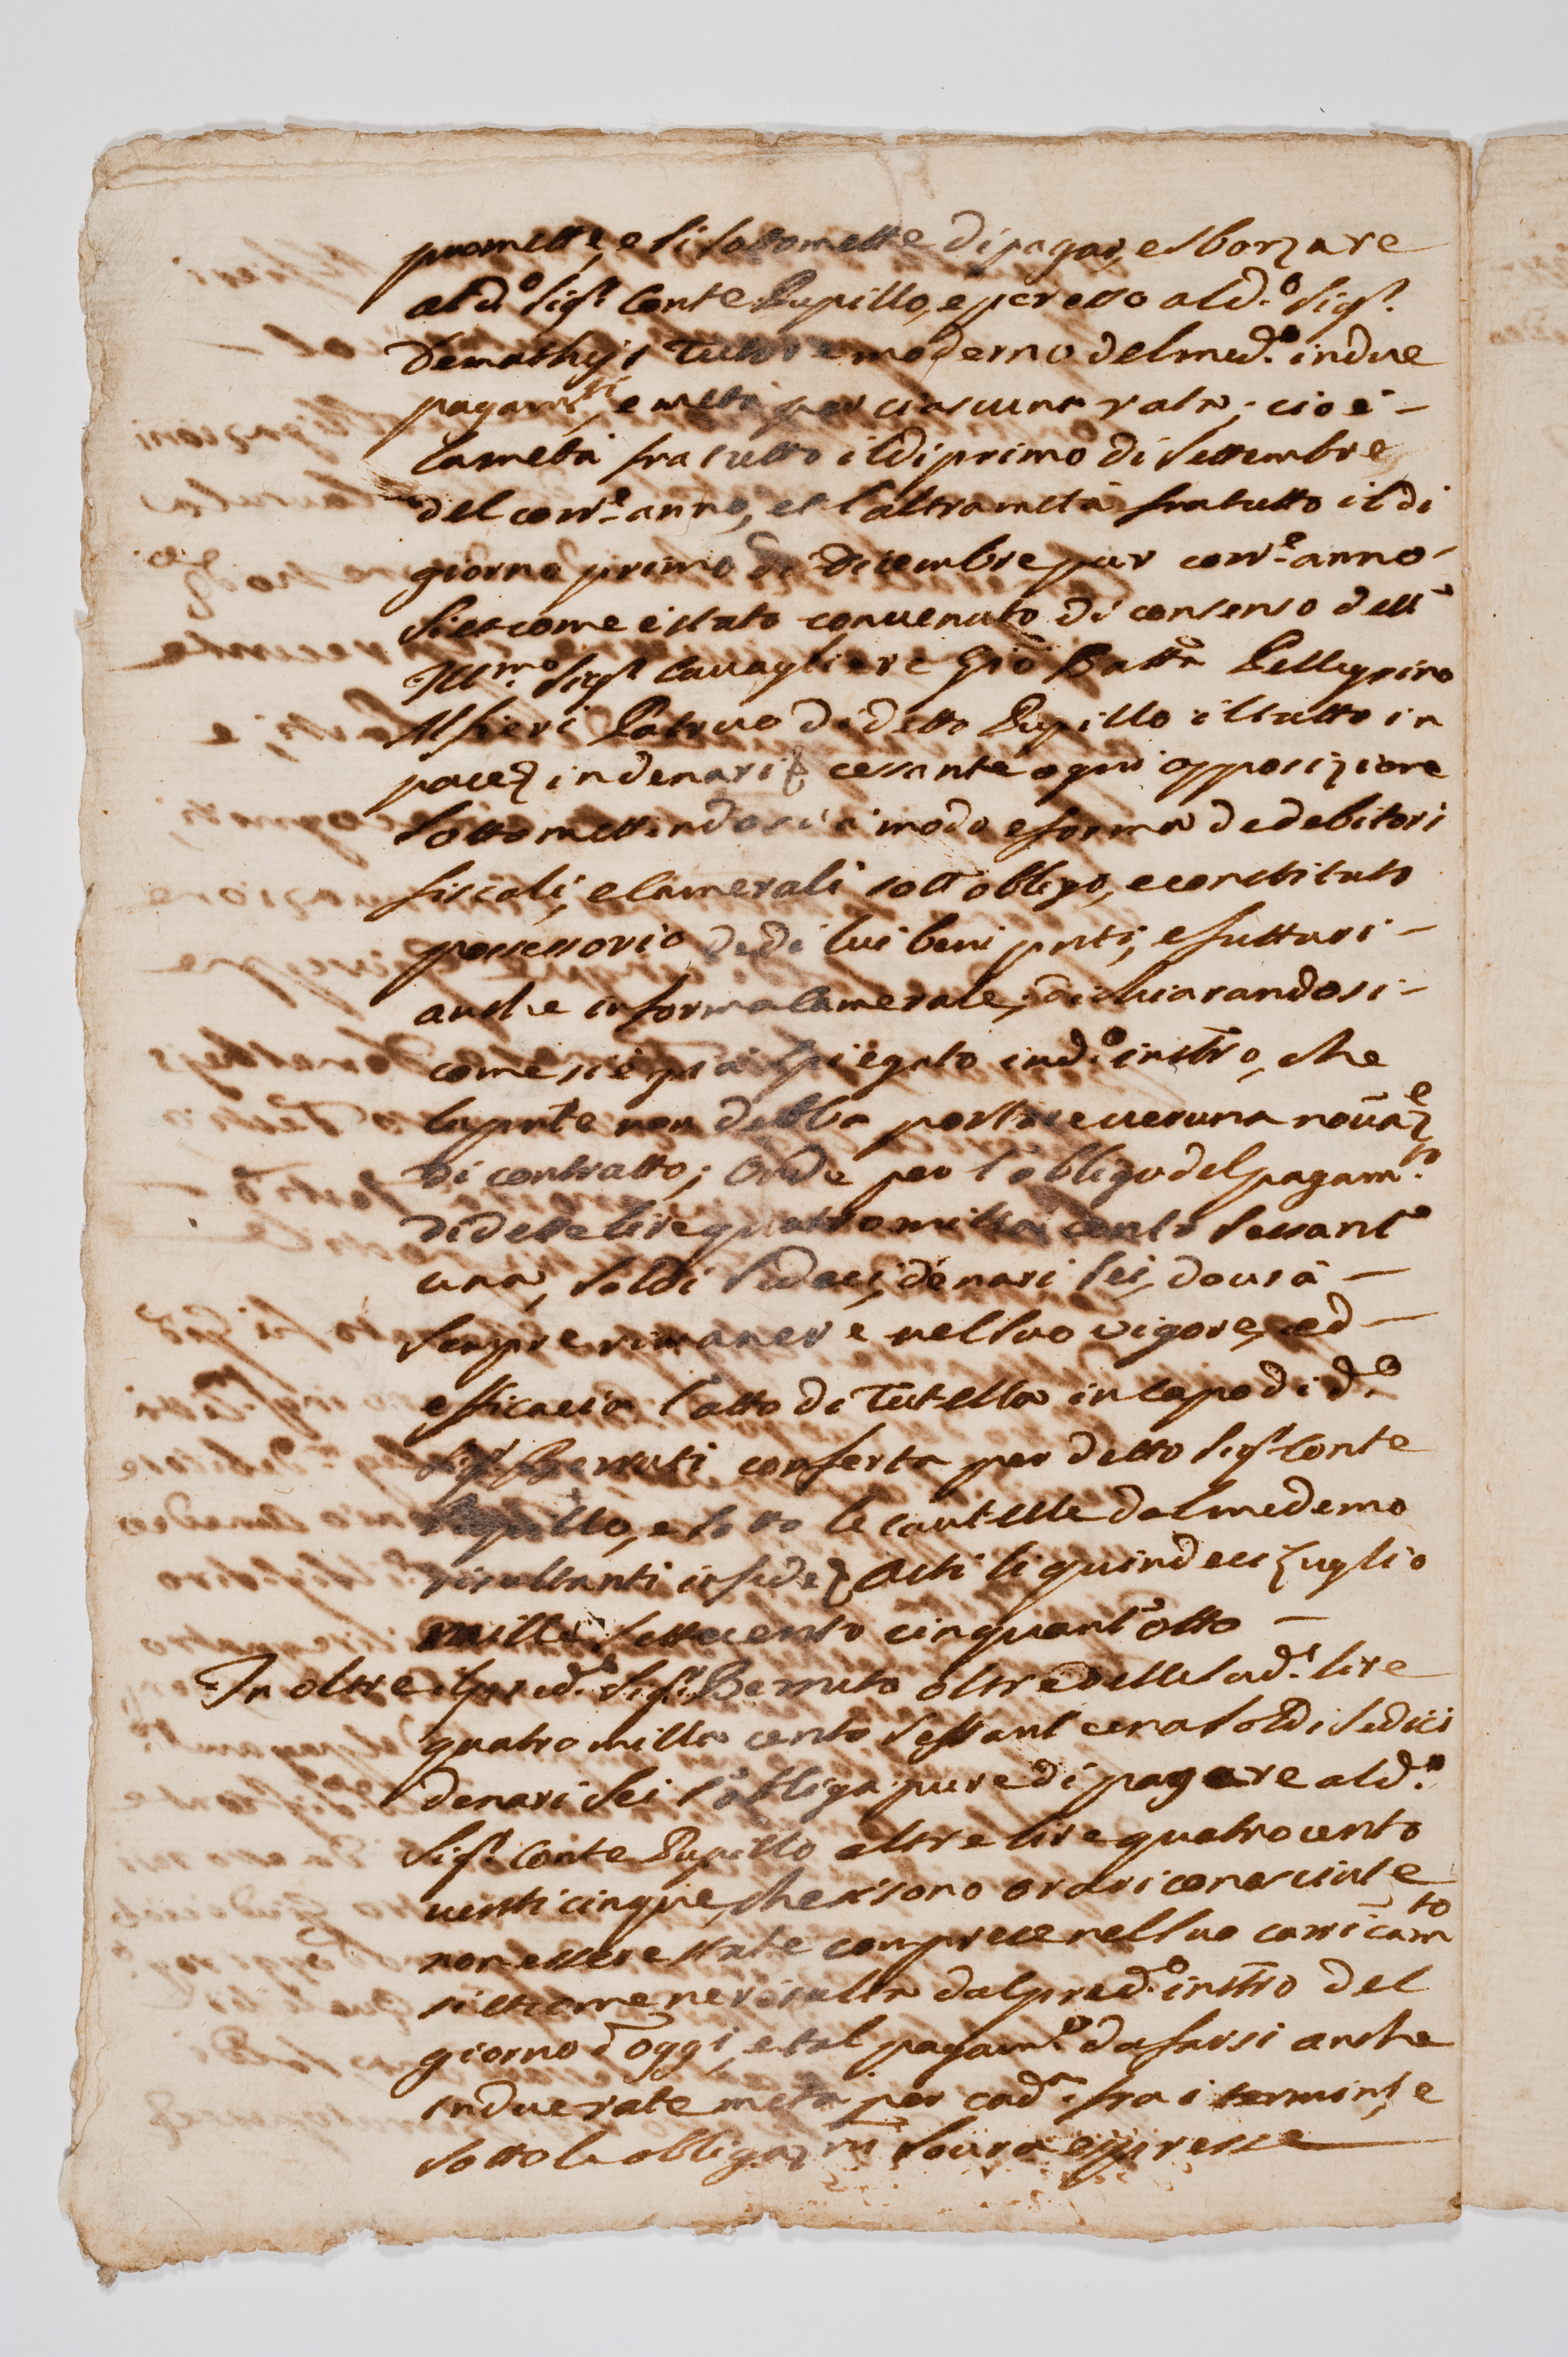 promette, e si sottomette di pagar, e sborzare
al d.º Sig.r Conte Pupillo, e per esso al d.º Sig.r
Demathejs Tuttore moderno del med.º in due
pagam.ti, e metà per ciascuna rata; cioè -
la metà fra tutto il di primo di Settembre
del corr.e anno, et l'altra metà fra tutto il di
giorno primo di Dicembre pur corr.e anno -
Siccome è stato convenuto di consenso dell'
Ill.mo Sig.r Cavagliere Gio Batt.a Pellegrino
Alfieri Patruo di detto Pupillo il tutto in
pace, in denari cessante ogni opposizione
sottomettendosi a modo e forma de debitori
fiscali, e Camerali sott'obligo, e constituto
possessorio de di lui beni pnti, e futturi -
anche in forma Camerale, dichiarandosi -
come si è già spiegato in d.º instro, che
la pnte non debba portare veruna novaz.e
di contratto; Onde per l'obligo del pagam.to
di dette lire quattro milla cento sessant'
una, soldi sedeci, denari sei, dovrà -
sempre rimanere nel suo vigore, ed -
efficacia l'atto di Tutella in capo di d.º
Sig.r Berruti conferta per detto Sig.r Conte
Pupillo, e sotto le cautelle dal medemo
risultanti in fede Asti li quindeci Luglio
mille settecento cinquant'otto -
In oltre il pred.º Sig.r Berruto oltre delle sud.e lire
quatro milla cento sessant'una soldi sedici
denari sei s'obliga pure di pagare al d.º
Sig.r Conte Pupillo altre lire quatrocento
venti cinque, che si sono ora riconosciute
non essere state comprese nel suo carricam.to
siccome ne risulta dal pred.º instro del
giorno d'oggi, e tal pagam.to da farsi anche
in due rate metà per cad.a fra i termini, e
sotto le obligaz.ni sovra espresse